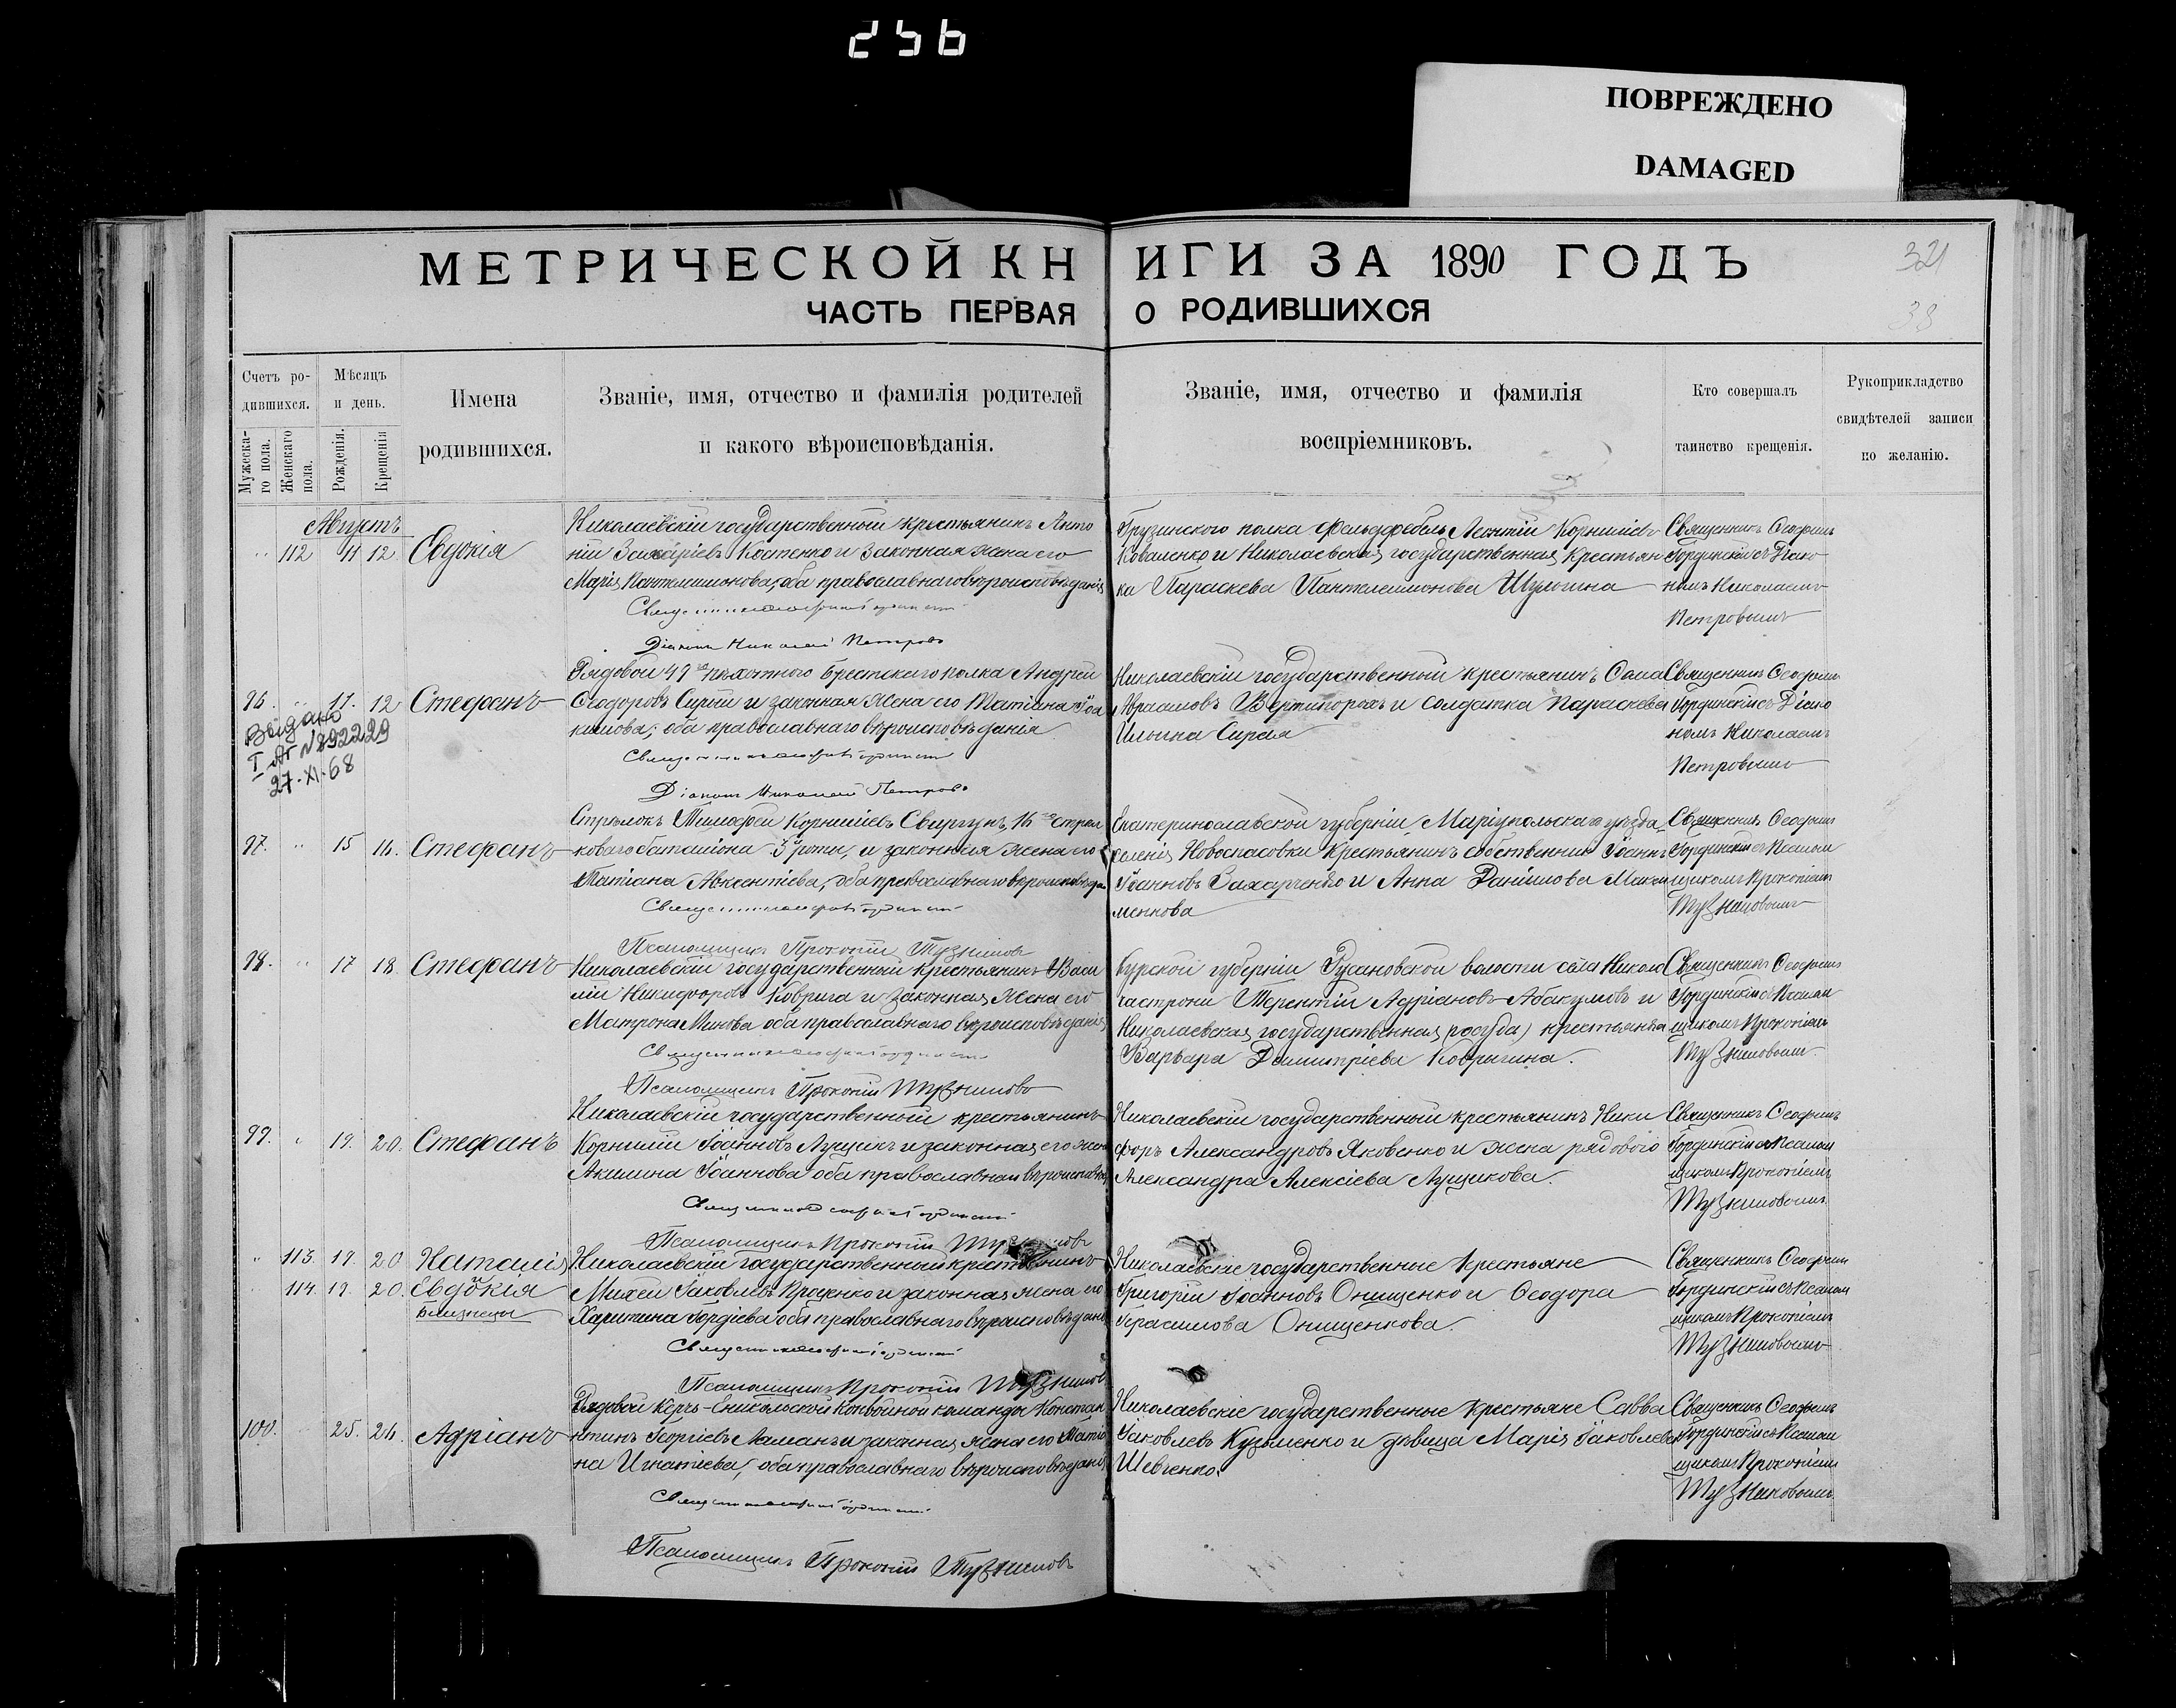 256
ПОВРЕЖДЕНО
DAMAGED
МЕТРИЧЕСКОЙ КНИГИ ЗА 1890 ГОДЪ
ЧАСТЬ ПЕРВАЯ О РОДИВШИХСЯ
321
38
Счетъ ро-
дившихся.
Мужеска-
го пола.
Женскаго
пола.
Мѣсяцъ
и день.
Рожденія.
Крещенія
Имена
родившихся.
Званіе, имя, отчество и фамилія родителей
и какого вѣроисповѣданія.
Званіе, имя, отчество и фамилія
воспріемниковъ.
Кто совершалъ
таинство крещенія.
Рукоприкладство
свидѣтелей записи
по желанію.
Августъ
112 11 12 Евдокія
Николаевскій государственный крестьянинъ Анто
ній Захаріевъ Костенко и законная жена его
Марія Пантелеимонова, оба православнаго вѣроисповѣданія
Діаконъ Николай Петровъ
Грузинского полка Фельдфебель Леонтій Корниліевъ
Коваленко и Николаевская государственная крестьян
ка Параскева Пантелеимонова Шульгина
Священникъ Ѳеофилъ
Гординскій съ Діако
номъ Николаемъ
Петровымъ
96. 11. 12 Стефанъ
Выдано
27.XI.68
Рядовой 49го пѣхотного Брестского полка Андрей
Ѳеодоровъ Сирый и законная жена его Татіана Іоа
кимова; оба православнаго вѣроисповѣданія
Діаконъ Николай Петровъ
Николаевскій государственный крестьянинъ Сава
Авраамовъ Вертипорохъ и солдатка Параскева
Ильина Сирая
Священникъ Ѳеофилъ
Гординскій съ Діако
номъ Николаемъ
Петровымъ
97. 15 16. Стефанъ
Стрѣлокъ Тимофей Корниліевъ Свиргунъ, 16го стрѣл
коваго баталіона 3 роты, и законная жена его
Татіана Авксентіева, оба православнаго вѣроисповѣдан
Псаломщикъ Прокопій Тузниковъ
Екатеринославской губерніи, Маріупольскаго уѣзда
селенія Новоспасовки крестьянинъ собственникъ Іоаннъ
Іоанновъ Захарченко и Анна Даніилова Макси
менкова
Священникъ Ѳеофилъ
Гординскій съ Псалом
щикомъ Прокопіемъ
Тузниковымъ
98. 17 18. Стефанъ
Николаевскій государственный крестьянинъ Васи
лій Никифоровъ Коврига и законная жена его
Матрона Минова оба православнаго вѣроисповѣданія
Псаломщикъ Прокопій Тузниковъ
Курской губерніи Русановской волости села Никола
Терентій Адріановъ Абакумовъ и
Николаевская государственная (госуда) крестьянка
Варвара Димитріева Ковригина.
Священникъ Ѳеофилъ
Гординскій съ Псалом
щикомъ Прокопіемъ
Тузниковымъ.
99. 19. 20. Стефанъ
Николаевскій государственный крестьянинъ
Корнилій Іоанновъ Лущикъ и законная его жена
Акилина Іоаннова оба православнаго вѣроисповѣд
Псаломщикъ Прокопій Тузниковъ
Николаевскій государственный крестьянинъ Ники
форъ Александровъ Яковенко и жена рядового
Александра Алексіева Лущикова.
Священникъ Ѳеофилъ
Гординскій съ Псалом
щикомъ Прокопіемъ
Тузниковымъ
113. 19. 20 Наталія
114. 19. 20. Евдокія
Близнецы
Николаевскій государственный крестьянинъ
Михей Іаковлевъ Проценко и законная жена его
Харитина Гордіева оба православнаго вѣроисповѣдан
Псаломщикъ Прокопій Тузниковъ
Николаевскіе государственные крестьяне
Григорій Іоанновъ Онищенко и Ѳеодора
Герасимова Онищенкова.
Священникъ Ѳеофилъ
Гординскій съ Псалом
щикомъ Прокопіемъ
Тузниковымъ
100. 25. 26. Адріанъ
Рядовой Керчь-Еникольской Конвойной команды Констан
тинъ Георгіевъ Ламанъ и законная жена его Татіа
на Игнатіева, оба православнаго вѣроисповѣдан
Псаломщикъ Прокопій Тузниковъ
Николаевскіе государственные крестьяне Савва
Іаковлевъ Кузьменко и дѣвица Марія Іаковлева
Шевченко.
Священникъ Ѳеофилъ
Гординскій съ Псалом
щикомъ Прокопіемъ
Тузниковымъ